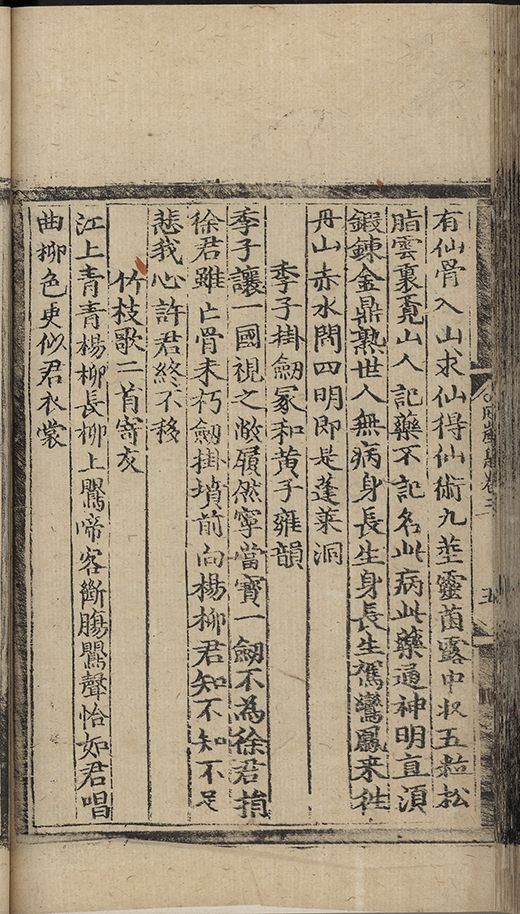 有仙骨入山求仙得仙術九莖靈菌露中收五粒松
脂雲裏覔山人記藥不記名此病此藥通神明直湏
鍛鍊金鼎熟世人無病身長生身長生駕鸞鳳来徃
丹山赤水問四明即是蓬萊洞
季子掛劒冢和黄子雍韻
季子讓一國視之敝屣然寧當寳一劒不為徐君捐
徐君雖亡骨未朽劒掛墳前向楊柳君知不知不足
悲我心許君終不移
竹枝歌二首寄友
江上青青楊柳長柳上鸎啼客斷膓鸎聲恰如君唱
曲柳色更似君衣裳
卷二
五